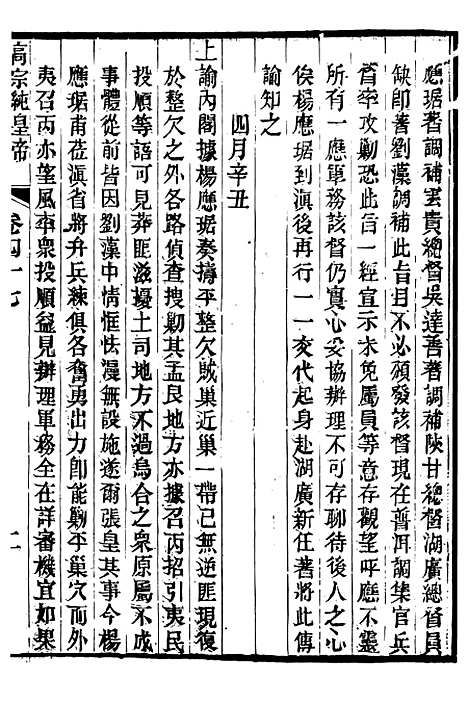 應琚著調補雲貴總督吳達善著調補陝甘總督湖廣總督員
缺即著劉藻調補此旨且不必頒發該督現在普洱調集官兵
督率攻勦恐此旨一經宣示未免屬員等意存觀望呼應不靈
所有一應軍務該督仍實心妥協辦理不可存聊待後人之心
俟楊應琚到滇後再行一一交代起身赴湖廣新任著將此傳
諭知之
四月辛丑
上諭內閣據楊應琚奏攻平整欠賊巢近巢一帶已無逆匪現復
於整欠之外各路偵查搜勦其孟艮地方亦據召丙招引夷民
投順等語可見莽匪滋擾土司地方不過烏合之衆原屬不成
事體從前皆因劉藻中情恇怯漫無設施遂爾張皇其事今楊
應琚甫莅滇省將弁兵練俱各奮勇出力卽能勦平巢穴而外
夷召丙亦望風率衆投順益見辦理軍務全在詳審機宜如果
高宗純皇帝 卷四十七 二